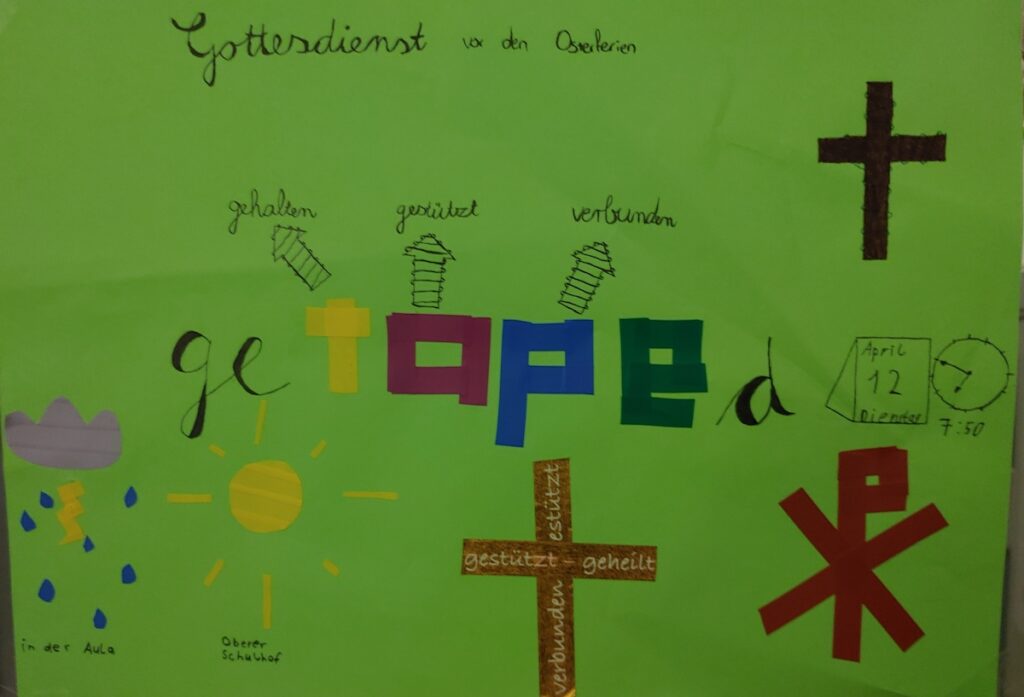 Gottesdienst vor den Osterferien
gehalten gestützt verbunden
getaped
April
12
Dienstag
7:50
estützt
gestützt - geheilt
verbunden
in der Aula
Oberer
Schulhof